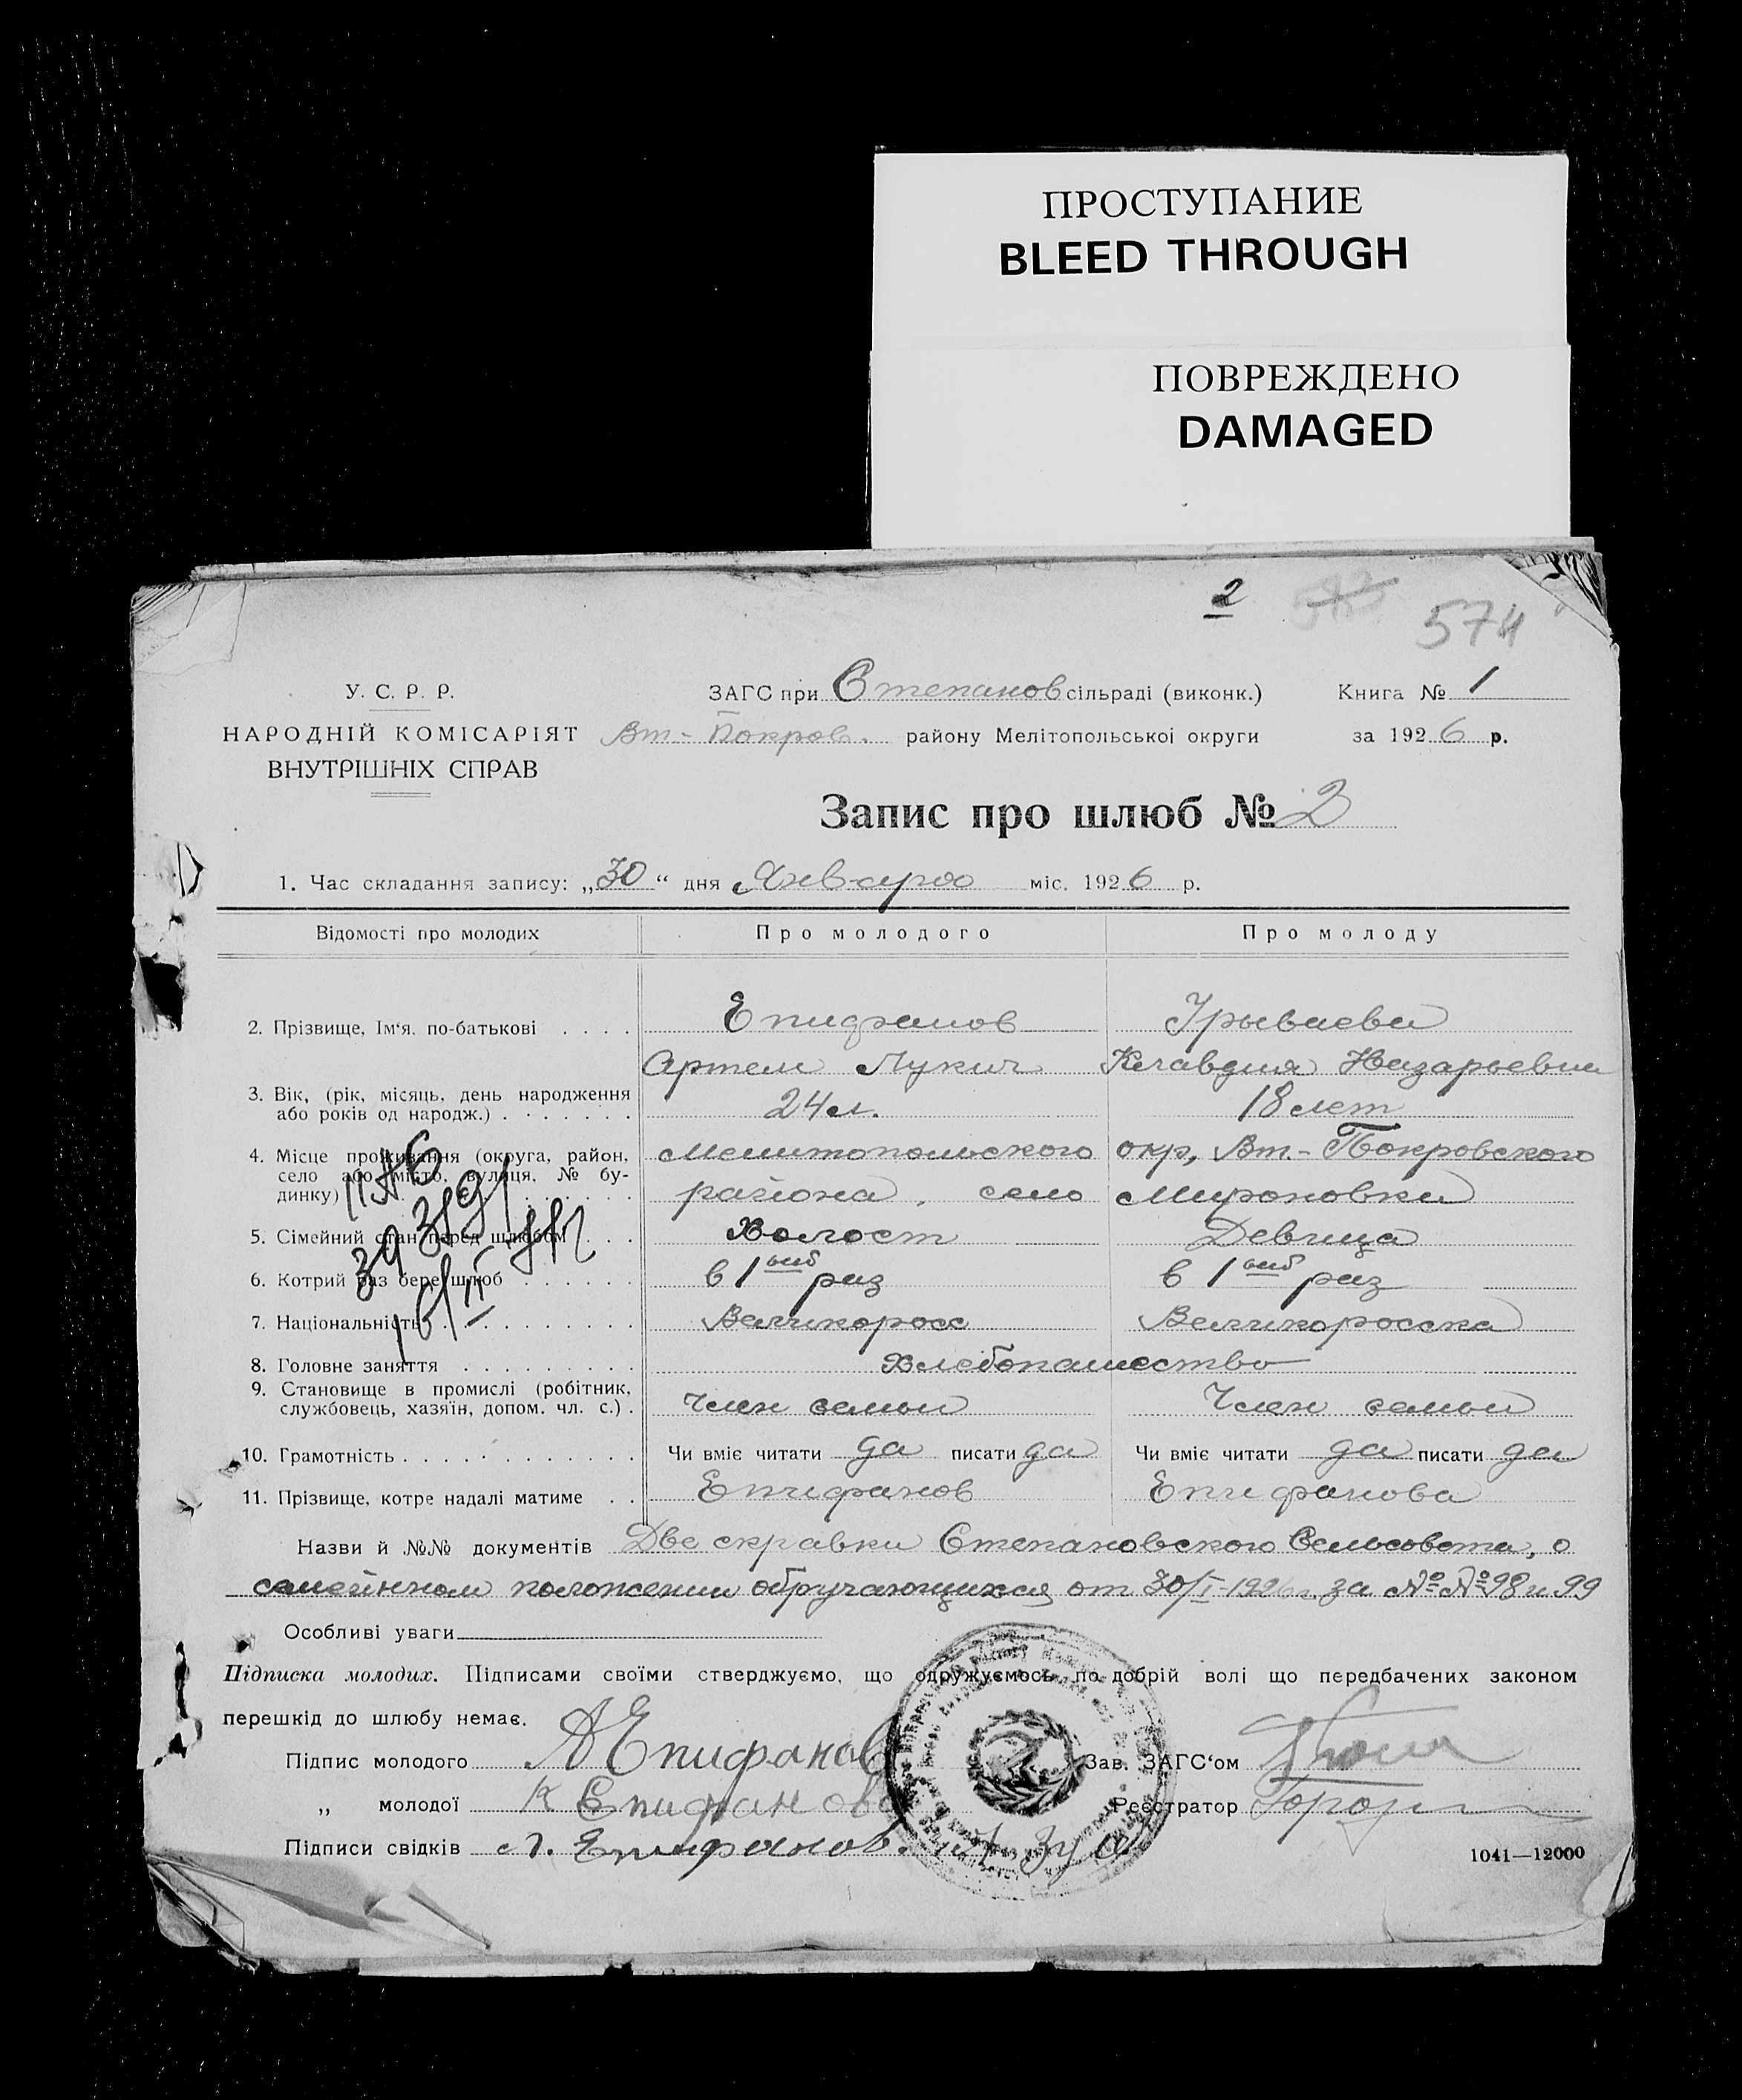 ПРОСТУПАНИЕ
BLEED THROUGH
ПОВРЕЖДЕНО
DAMAGED
2
574
У. С. Р. Р.
НАРОДНІЙ КОМІСАРІЯТ
ВНУТРІШНІХ СПРАВ
ЗАГС при Степанов сільраді (виконк.) Книга № 1
Вт.-Покров. району Мелітопольської округи за 1926 р.
Запис про шлюб № 2
1. Час складання запису: „30“ дня Января міс. 1926 р.
Відомості про молодих Про молодого Про молоду
2. Прізвище, Ім‘я, по-батькові . . . . Епифанов Урываева
Артем Лукич Клавдия Назарьевна
3. Вік, (рік, місяць, день народження
або років од народж.) . . . . . . . 24 л. 18 лет
4. Місце проживання (округа, район, Мелитопольского окр, Вт.-Покровского
село або місто, вулиця, № бу-
динку) . . . . . района, село Мироновка
5. Сімейний стан перед шлюбом . . . Холост Девица
6. Котрий раз бере шлюб . . . . . . в 1ый раз в 1ый раз
7. Національність . . . . . . . . . Великоросс Великоросска
8. Головне заняття . . . . . . . . . Хлебопашество
9. Становище в промислі (робітник,
службовець, хазяїн, допом. чл. с.) . Член семьи Член семьи
10. Грамотність . . . . . . . . . . . . Чи вміє читати да писати да Чи вміє читати да писати да
11. Прізвище, котре надалі матиме . . Епифанов Епифанова
Назви й №№ документів Две справки Степановского Сельсовета, о
семейном положении обручающихся от 30/I-1926 г. за №№ 98 и 99
Особливі уваги
Підписка молодих. Підписами своїми стверджуємо, що одружуємось по добрій волі що передбачених законом
перешкід до шлюбу немає.
Підпис молодого А Епифанов Зав. ЗАГС‘ом
„ молодої К Епифанова Реєстратор
Підписи свідків Епифанов.
1041—12000